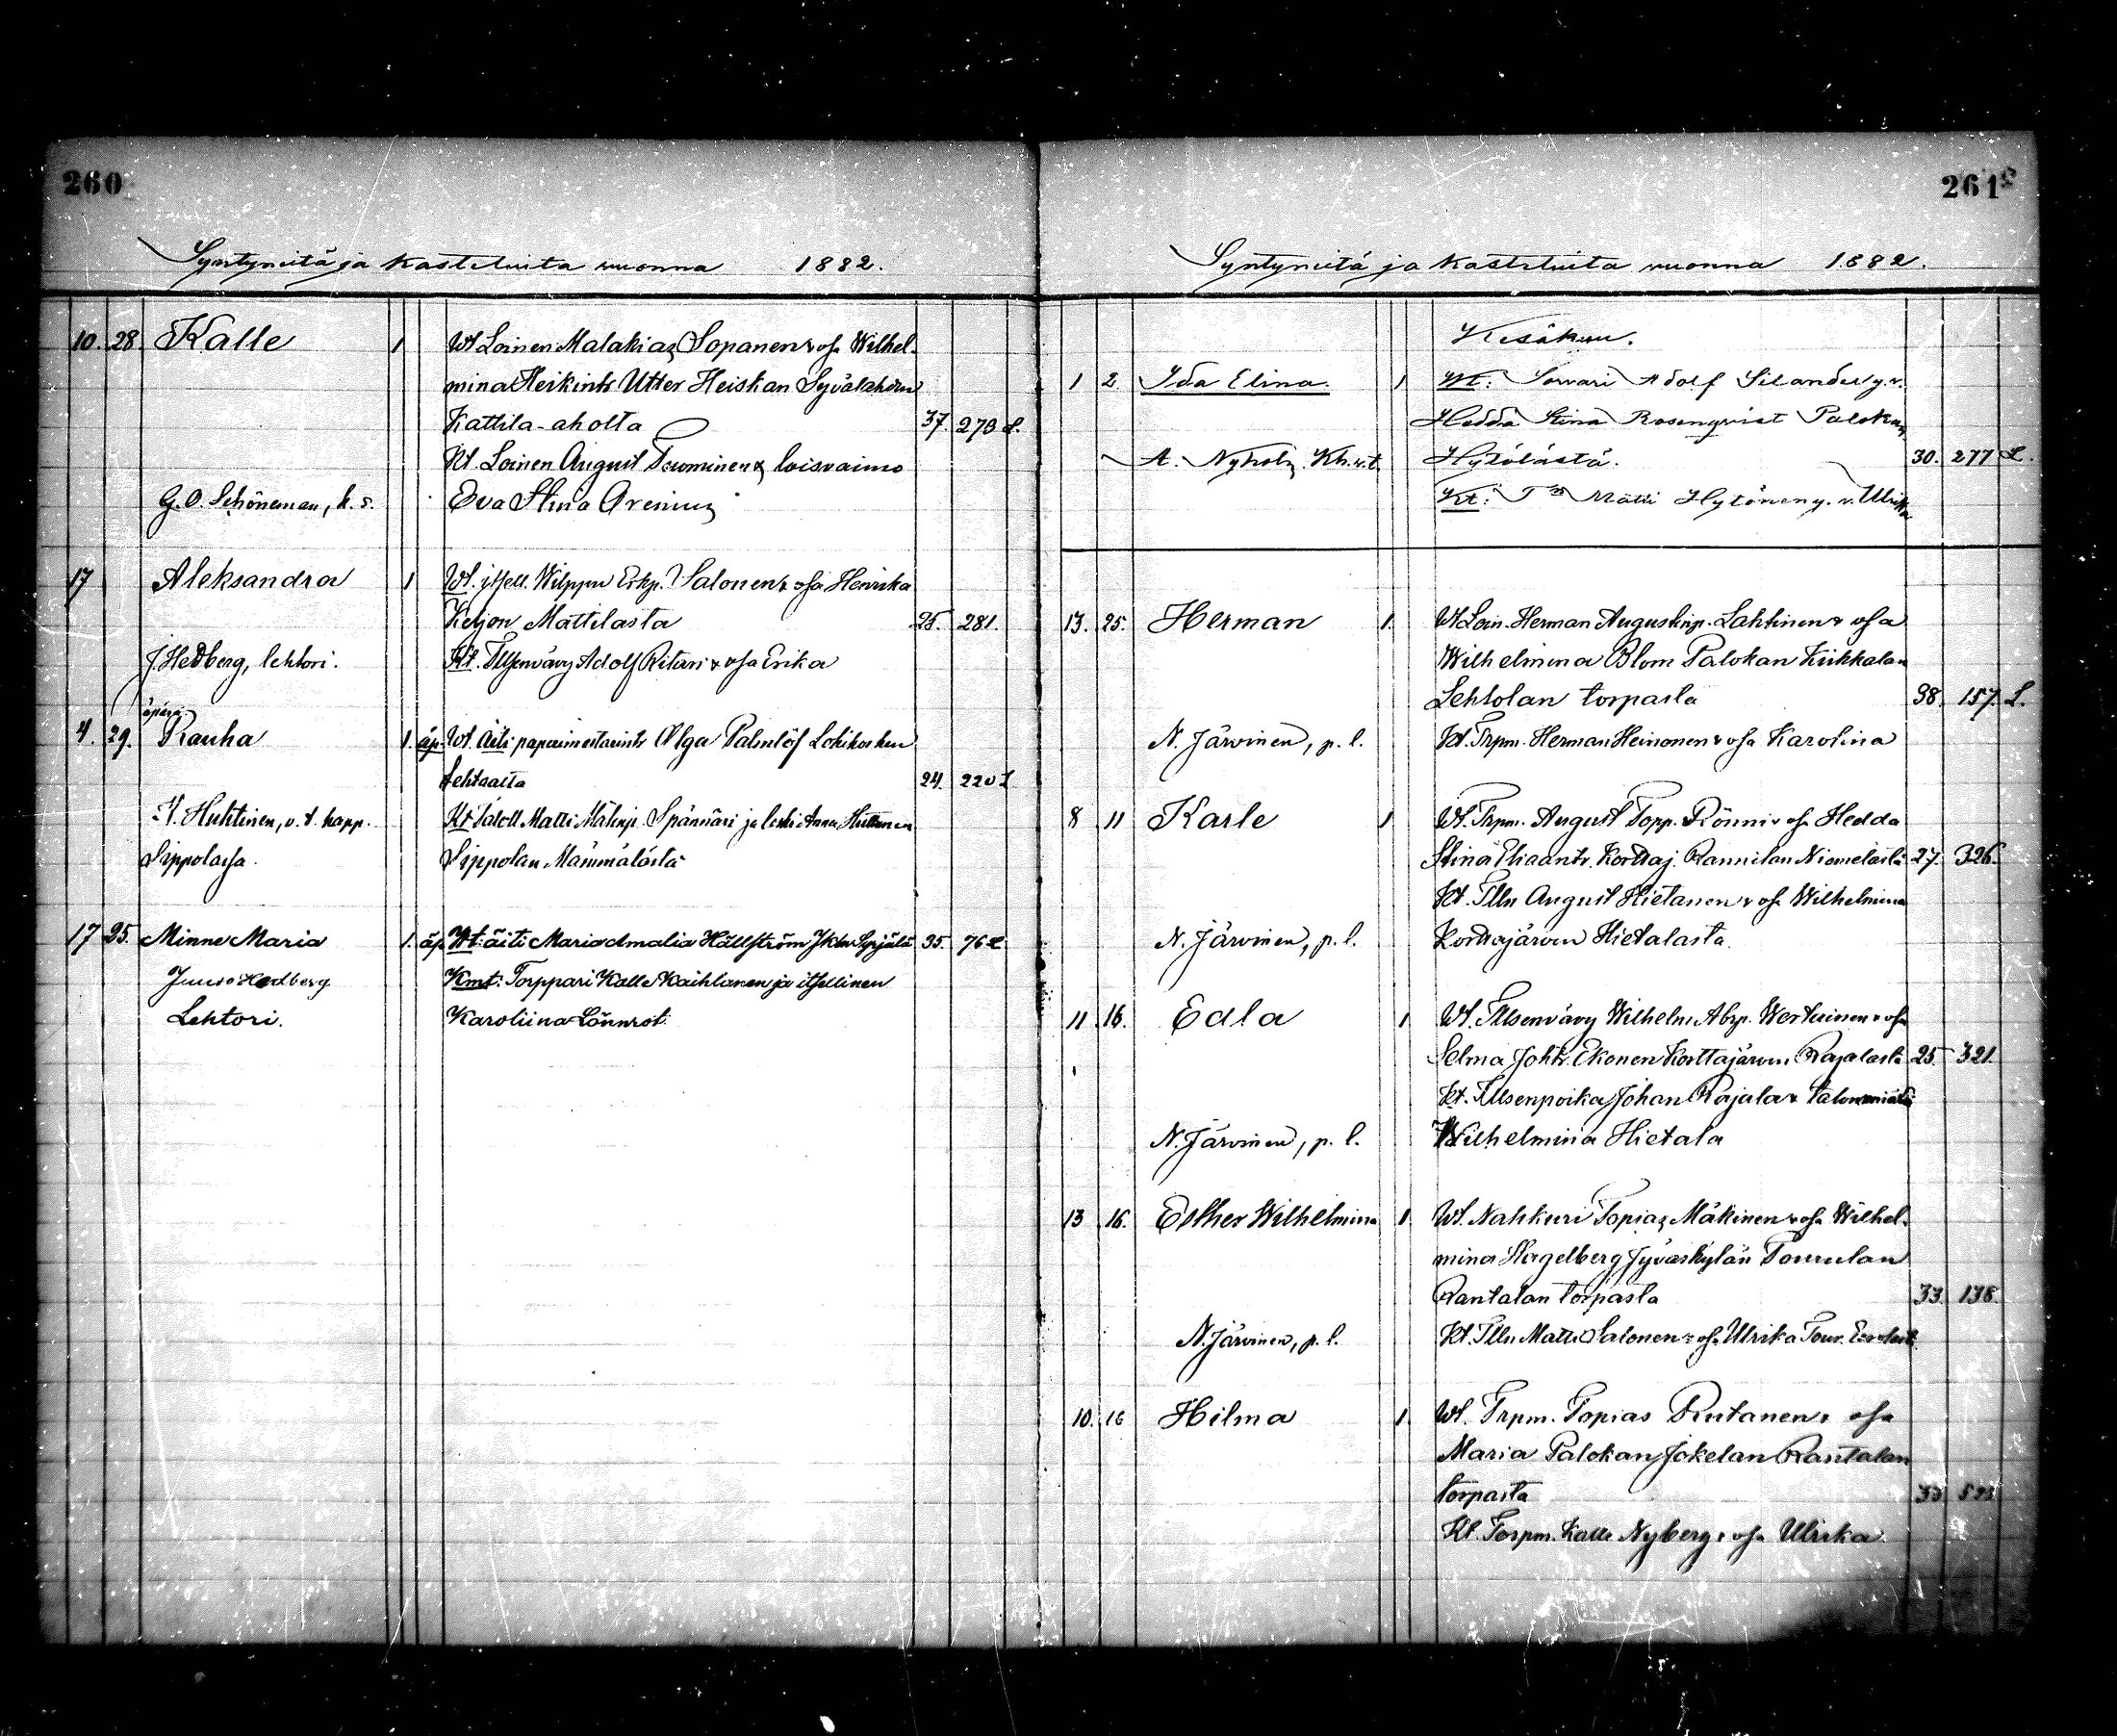 260
Syntyneitä ja kasteluita vuonna 1882.
10. 28. Kalle 1 Wt Loinen Malakias Sopanen & vsa Wilhel-
mina Heikintr Utter Heiskan Syvälahden
Kattila-aholta 37. 273 L.
Kt. Loinen August Tuominen & loisvaimo
G. O. Schöneman, k. s. Eva Stina Arenius
17 Aleksandra 1 Wt. itsell. Wilppu Erkp. Salonen & vsa Henrika
Keljon Mattilasta 25. 281.
J. Hedberg, lehtori. Kt. Tllsenvävy Adolf Ritari & vsa Erika
äpärä
4. 29. Rauha 1. äp. Wt. Äiti paperimestarintr Olga Palmlöf Lohikosken
tehtaalta 24. 220 L
H. Huhtinen, v. t. kapp. Kt Matti Spännäri ja leski Anna Huttunen
Sippolassa. Sippolan Mämmälästä
17 25. Minne Maria 1. äp. Wt: äiti Maria Amalia Hällström Jklän Syrjälä 35. 76 L
Juuso Hedberg Kmt: Torppari Kalle Kaihlanen ja itsellinen
Lehtori. Karoliina Lönnrot
261
Syntyneitä ja kasteluita vuonna 1882.
Kesäkuu.
1 2. Ida Elina. 1 Wt: Sorvari Adolf Silander y. v.
Hedda Stina Rosenqvist Palokan
A. Nyholm. Kh. v. t. Hytölästä. 30. 277 L.
Kt: Matti Hytönen y. v. Ulrika
13. 25. Herman 1. Wt Loin. Herman Augustinp. Lahtinen & vsa
Wilhelmina Blom Palokan Kiikkalan
Lehtolan torpasta 38. 157. L.
N. Järvinen, p. l. Kt. Trpm. Herman Heinonen & vsa Karolina
8 11 Karle 1 Wt. Trpm. August Topp. Rönni & vsa Hedda
Stina Eliaantr. Korttaj. Rannilan Niemelästä 27. 326.
Kt. Tlln August Hietanen & vsa Wilhelmina
N. Järvinen, p. l. Korttajärven Hietalasta.
11 16. Edla 1 Wt. Tllsenvävy Wilhelm Abrp. Wertainen & vsa
Selma Johtr. Ekonen Korttajärven Rajalasta 25. 321.
Kt. Tllsenpoika Johan Rajala &
N. Järvinen, p. l. Wilhelmina Hietala
13 16. Esther Wilhelmina 1 Wt. Nahkuri Topias Mäkinen & vsa Wilhel-
mina Hagelberg Jyväskylän Tourulan
Rantalan torpasta 33. 138.
N. Järvinen, p. l. Kt. Tlln Matti Salonen & vsa Ulrika Tour.
10. 16 Hilma 1 Wt. Trpm. Topias Rutanen & vsa
Maria Palokan Jokelan Rantalan
torpasta
Kt. Torpm. Kalle Nyberg & vsa Ulrika.